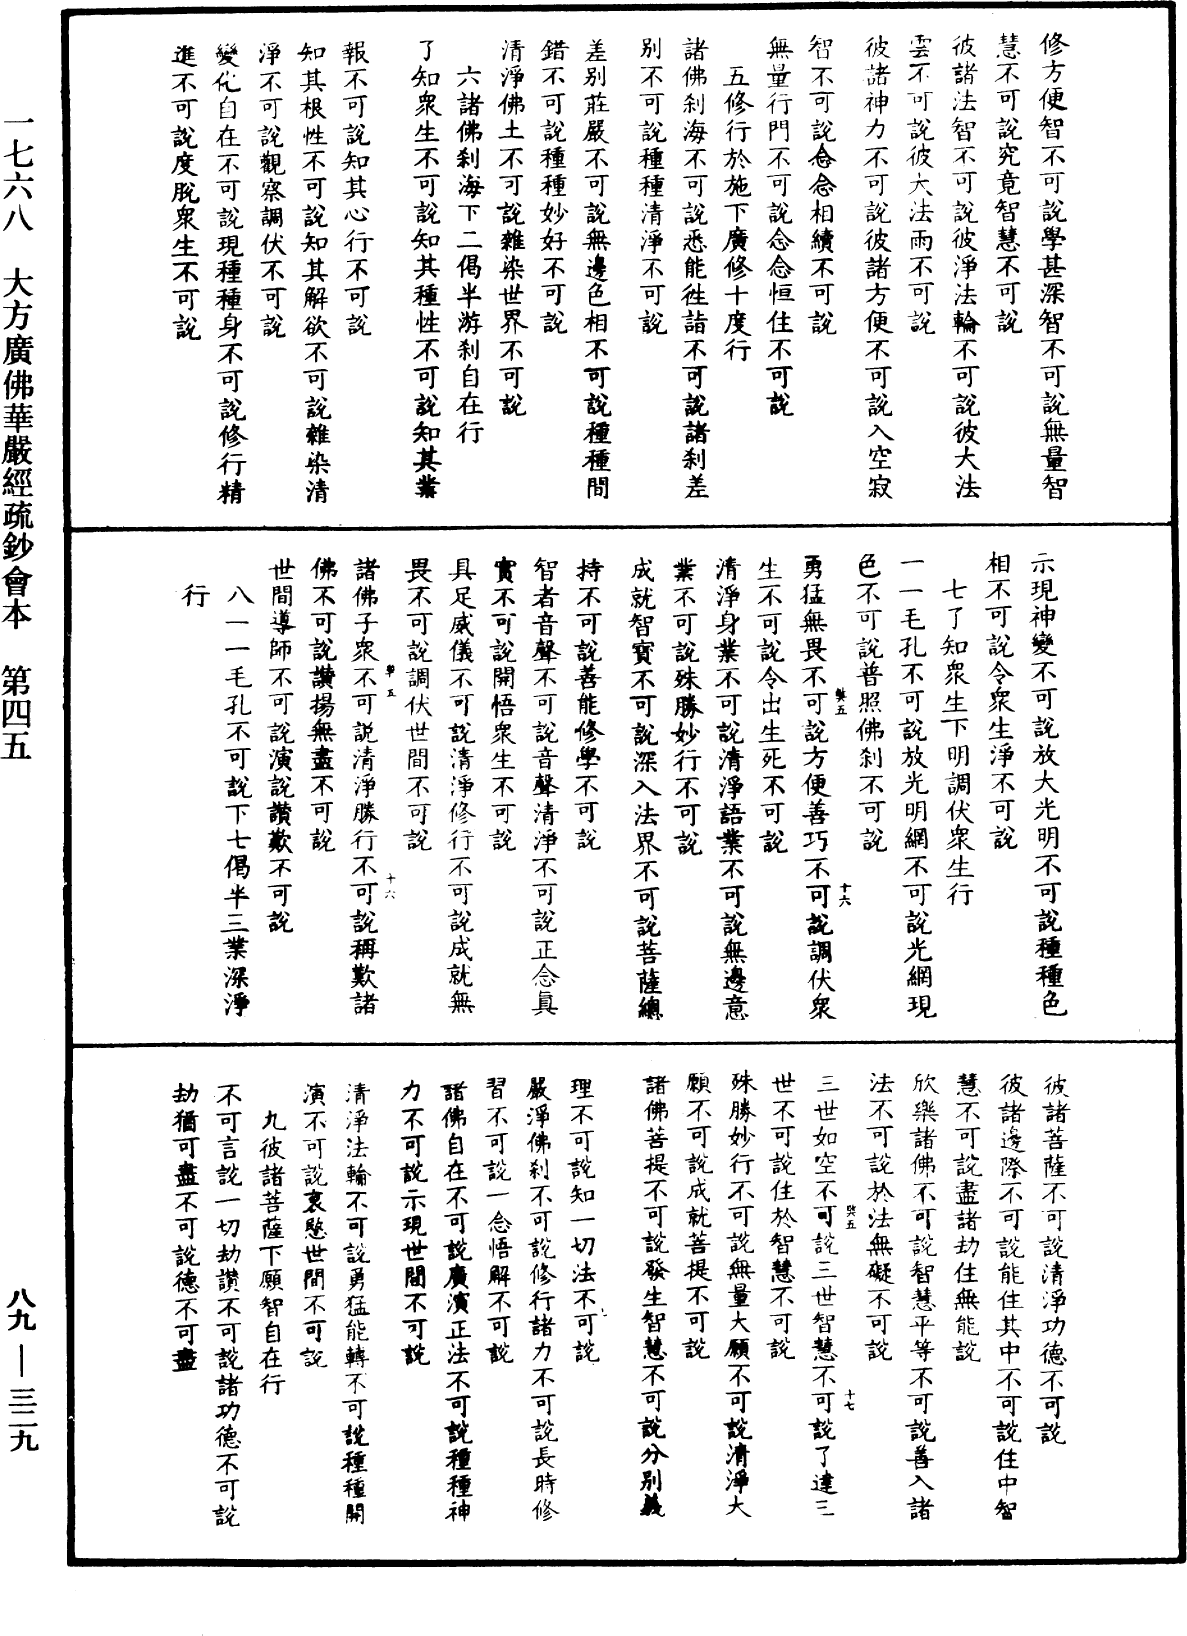 一七六八 大方廣佛華嚴經疏鈔會本 第四五
修方便智不可說學甚深智不可說無量智
慧不可說究竟智慧不可說
彼諸法智不可說彼淨法輪不可說彼大法
雲不可說彼大法雨不可說
彼諸神力不可說彼諸方便不可說入空寂
智不可說念念相續不可說
無量行門不可說念念恒住不可說
五修行於施下廣修十度行
諸佛刹海不可說悉能徃詣不可說諸刹差
別不可說種種清淨不可說
差別莊嚴不可說無邊色相不可說種種間
錯不可說種種妙好不可說
清淨佛土不可說雜染世界不可說
六諸佛刹海下二偈半游刹自在行
了知衆生不可說知其種性不可說知其業
報不可說知其心行不可說
知其根性不可說知其解欲不可說雜染清
淨不可說觀察調伏不可說
變化自在不可說現種種身不可說修行精
進不可說度脫衆生不可說
示現神變不可說放大光明不可說種種色
相不可說令衆生淨不可說
七了知衆生下明調伏衆生行
一一毛孔不可說放光明網不可說光網現
色不可說普照佛刹不可說
勇猛無畏不可說方便善巧不可說調伏衆
生不可說令出生死不可說
清淨身業不可說清淨語業不可說無邊意
業不可說殊勝妙行不可說
成就智寶不可說深入法界不可說菩薩總
持不可說善能修學不可說
智者音聲不可說音聲清淨不可說正念眞
實不可說開悟衆生不可說
具足威儀不可說清淨修行不可說成就無
畏不可說調伏世間不可說
諸佛子衆不可說清淨勝行不可說稱歎諸
佛不可說讚揚無盡不可說
世間導師不可說演說讚歎不可說
八一一毛孔不可說下七偈半三業深淨
行
彼諸菩薩不可說清淨功德不可說
彼諸邊際不可說能住其中不可說住中智
慧不可說盡諸劫住無能說
欣樂諸佛不可說智慧平等不可說善入諸
法不可說於法無礙不可說
三世如空不可說三世智慧不可說了達三
世不可說住於智慧不可說
殊勝妙行不可說無量大願不可說清淨大
願不可說成就菩提不可說
諸佛菩提不可說發生智慧不可說分別義
理不可說知一切法不可說
嚴淨佛刹不可說修行諸力不可說長時修
習不可說一念悟解不可說
諸佛自在不可說廣演正法不可說種種神
力不可說示現世間不可說
清淨法輪不可說勇猛能轉不可說種種開
演不可說哀愍世間不可說
九彼諸菩薩下願智自在行
不可言說一切劫讚不可說諸功德不可說
劫猶可盡不可說德不可盡
八九 — 三二九